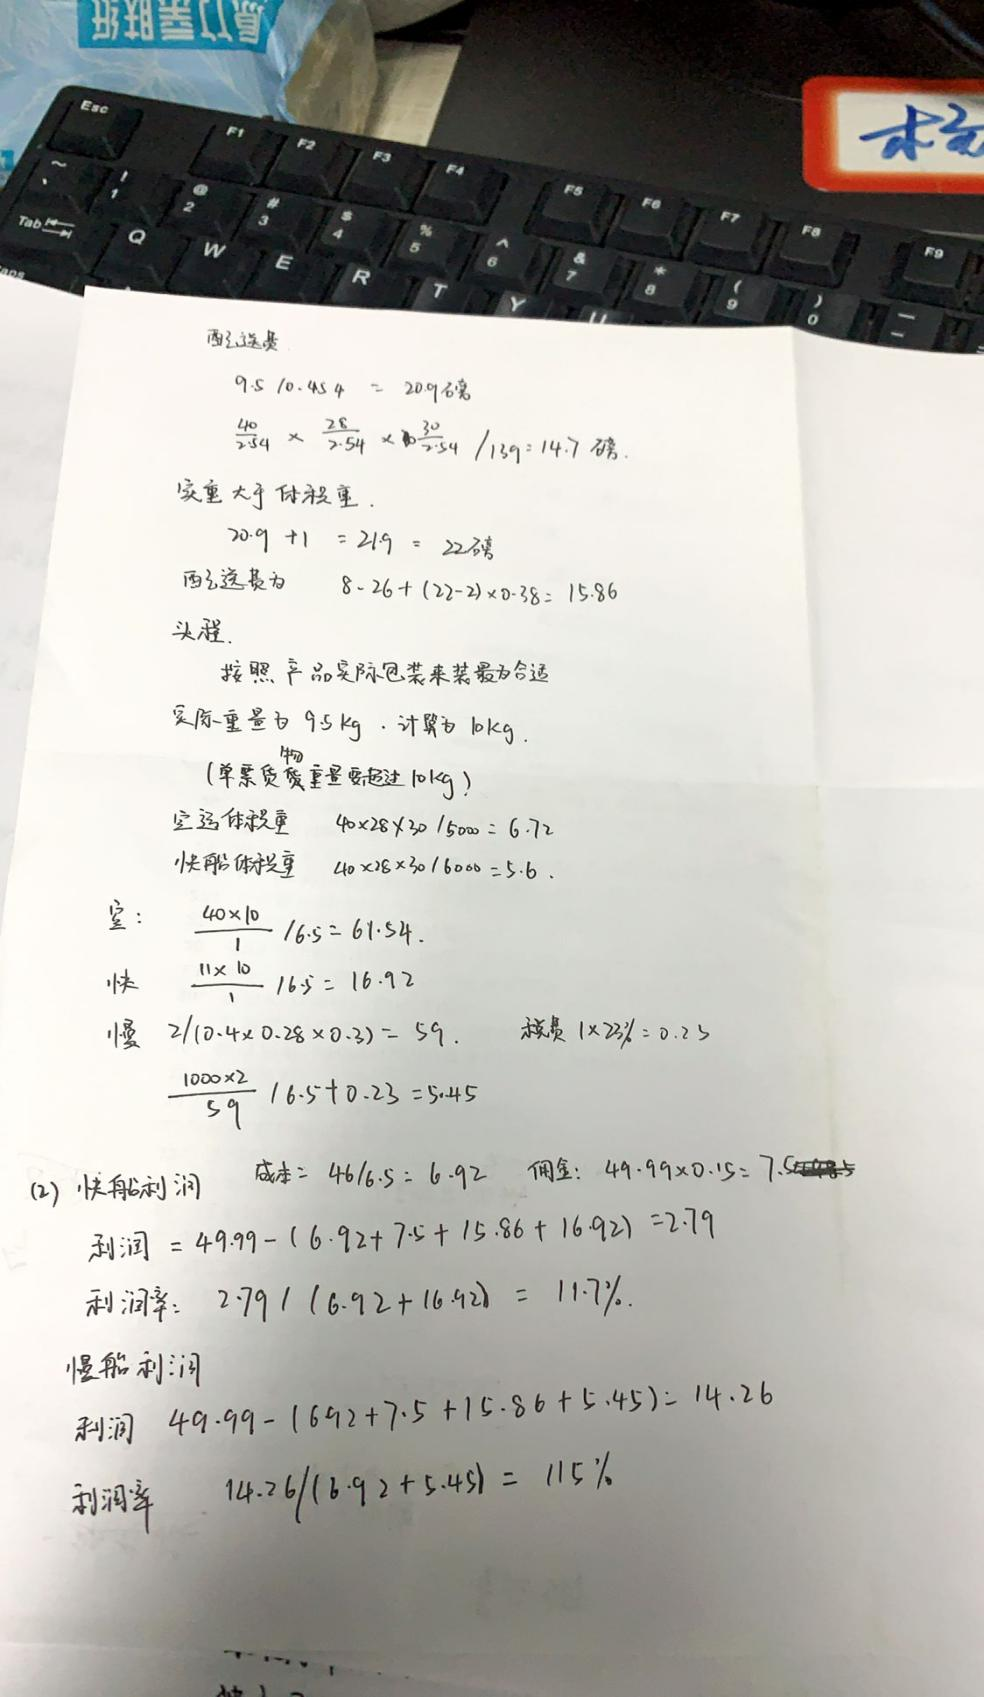 Esc
F1
F2
F3
F4
F5
F6
F7
F8
F9
Tab
Q W E R T Y U
配送费
9.5/0.454 = 20.9磅
40/2.54 × 28/2.54 × 30/2.54 /139=14.7磅.
实重大于体积重.
20.9+1 = 21.9 = 22磅
配送费为 8.26+(22-2)×0.38=15.86
头程.
按照产品实际包装来装最为合适
实际重量为9.5kg.计算为10kg.
(单票货物重量要超过10kg)
空运体积重 40×28×30/5000=6.72
快船体积重 40×28×30/6000=5.6.
空: 40×10/1 /6.5=61.54.
快 11×10/1 /6.5=16.92
慢 2/(0.4×0.28×0.3)=59. 税费1×23%=0.23
1000×2/59 /6.5+0.23=5.45
(2)快船利润 成本=46/6.5=6.92 佣金:49.99×0.15=7.5
利润=49.99-(6.92+7.5+15.86+16.92)=2.79
利润率: 2.79/(6.92+16.92)=11.7%.
慢船利润
利润 49.99-(692+7.5+15.86+5.45)=14.26
利润率 14.26/(6.92+5.45)=115%